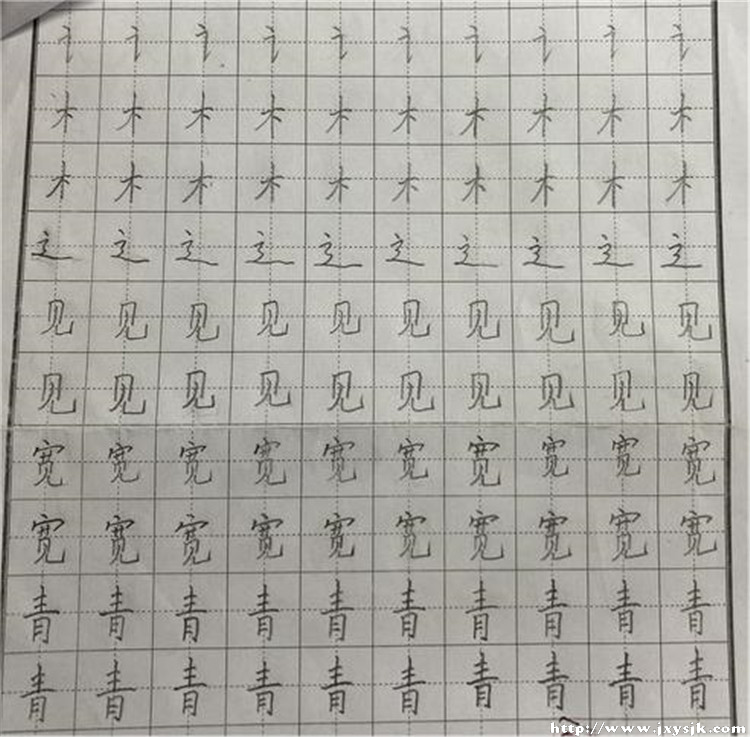 讠 讠 讠 讠 讠 讠 讠 讠 讠 讠
木 木 木 木 木 木 木 木 木 木
木 木 木 木 木 木 木 木 木 木
辶 辶 辶 辶 辶 辶 辶 辶 辶 辶
见 见 见 见 见 见 见 见 见 见
见 见 见 见 见 见 见 见 见 见
宽 宽 宽 宽 宽 宽 宽 宽 宽 宽
宽 宽 宽 宽 宽 宽 宽 宽 宽 宽
青 青 青 青 青 青 青 青 青 青
青 青 青 青 青 青 青 青 青 青
http://www.jxysjk.com/